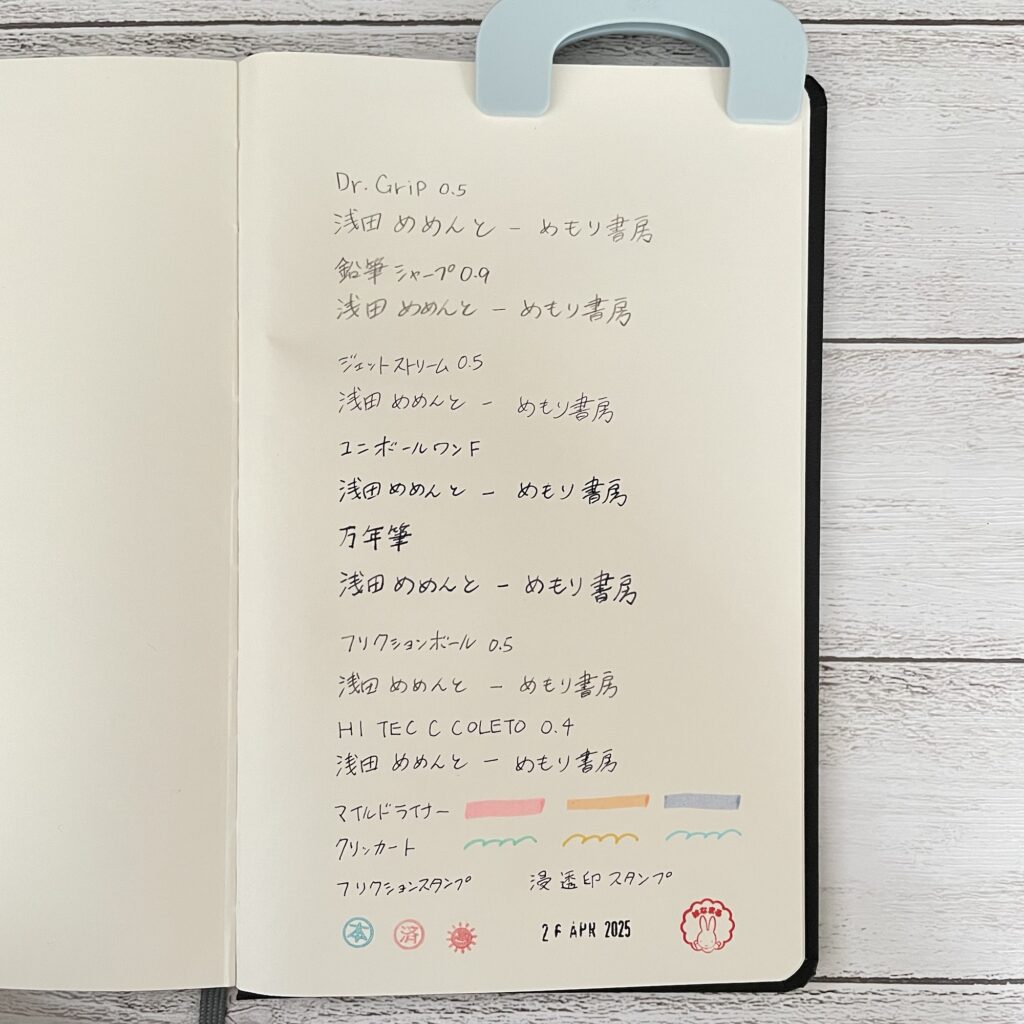 Dr. Grip 0.5
浅田 めめんと − めもり書房
鉛筆シャープ 0.9
浅田 めめんと − めもり書房
ジェットストリーム 0.5
浅田 めめんと − めもり書房
ユニボールワン F
浅田 めめんと − めもり書房
万年筆
浅田 めめんと − めもり書房
フリクションボール 0.5
浅田 めめんと − めもり書房
HI TEC C COLETO 0.4
浅田 めめんと − めもり書房
マイルドライナー
クリンカート
フリクションスタンプ 浸透印スタンプ
本 済 APR 2025 はなまる